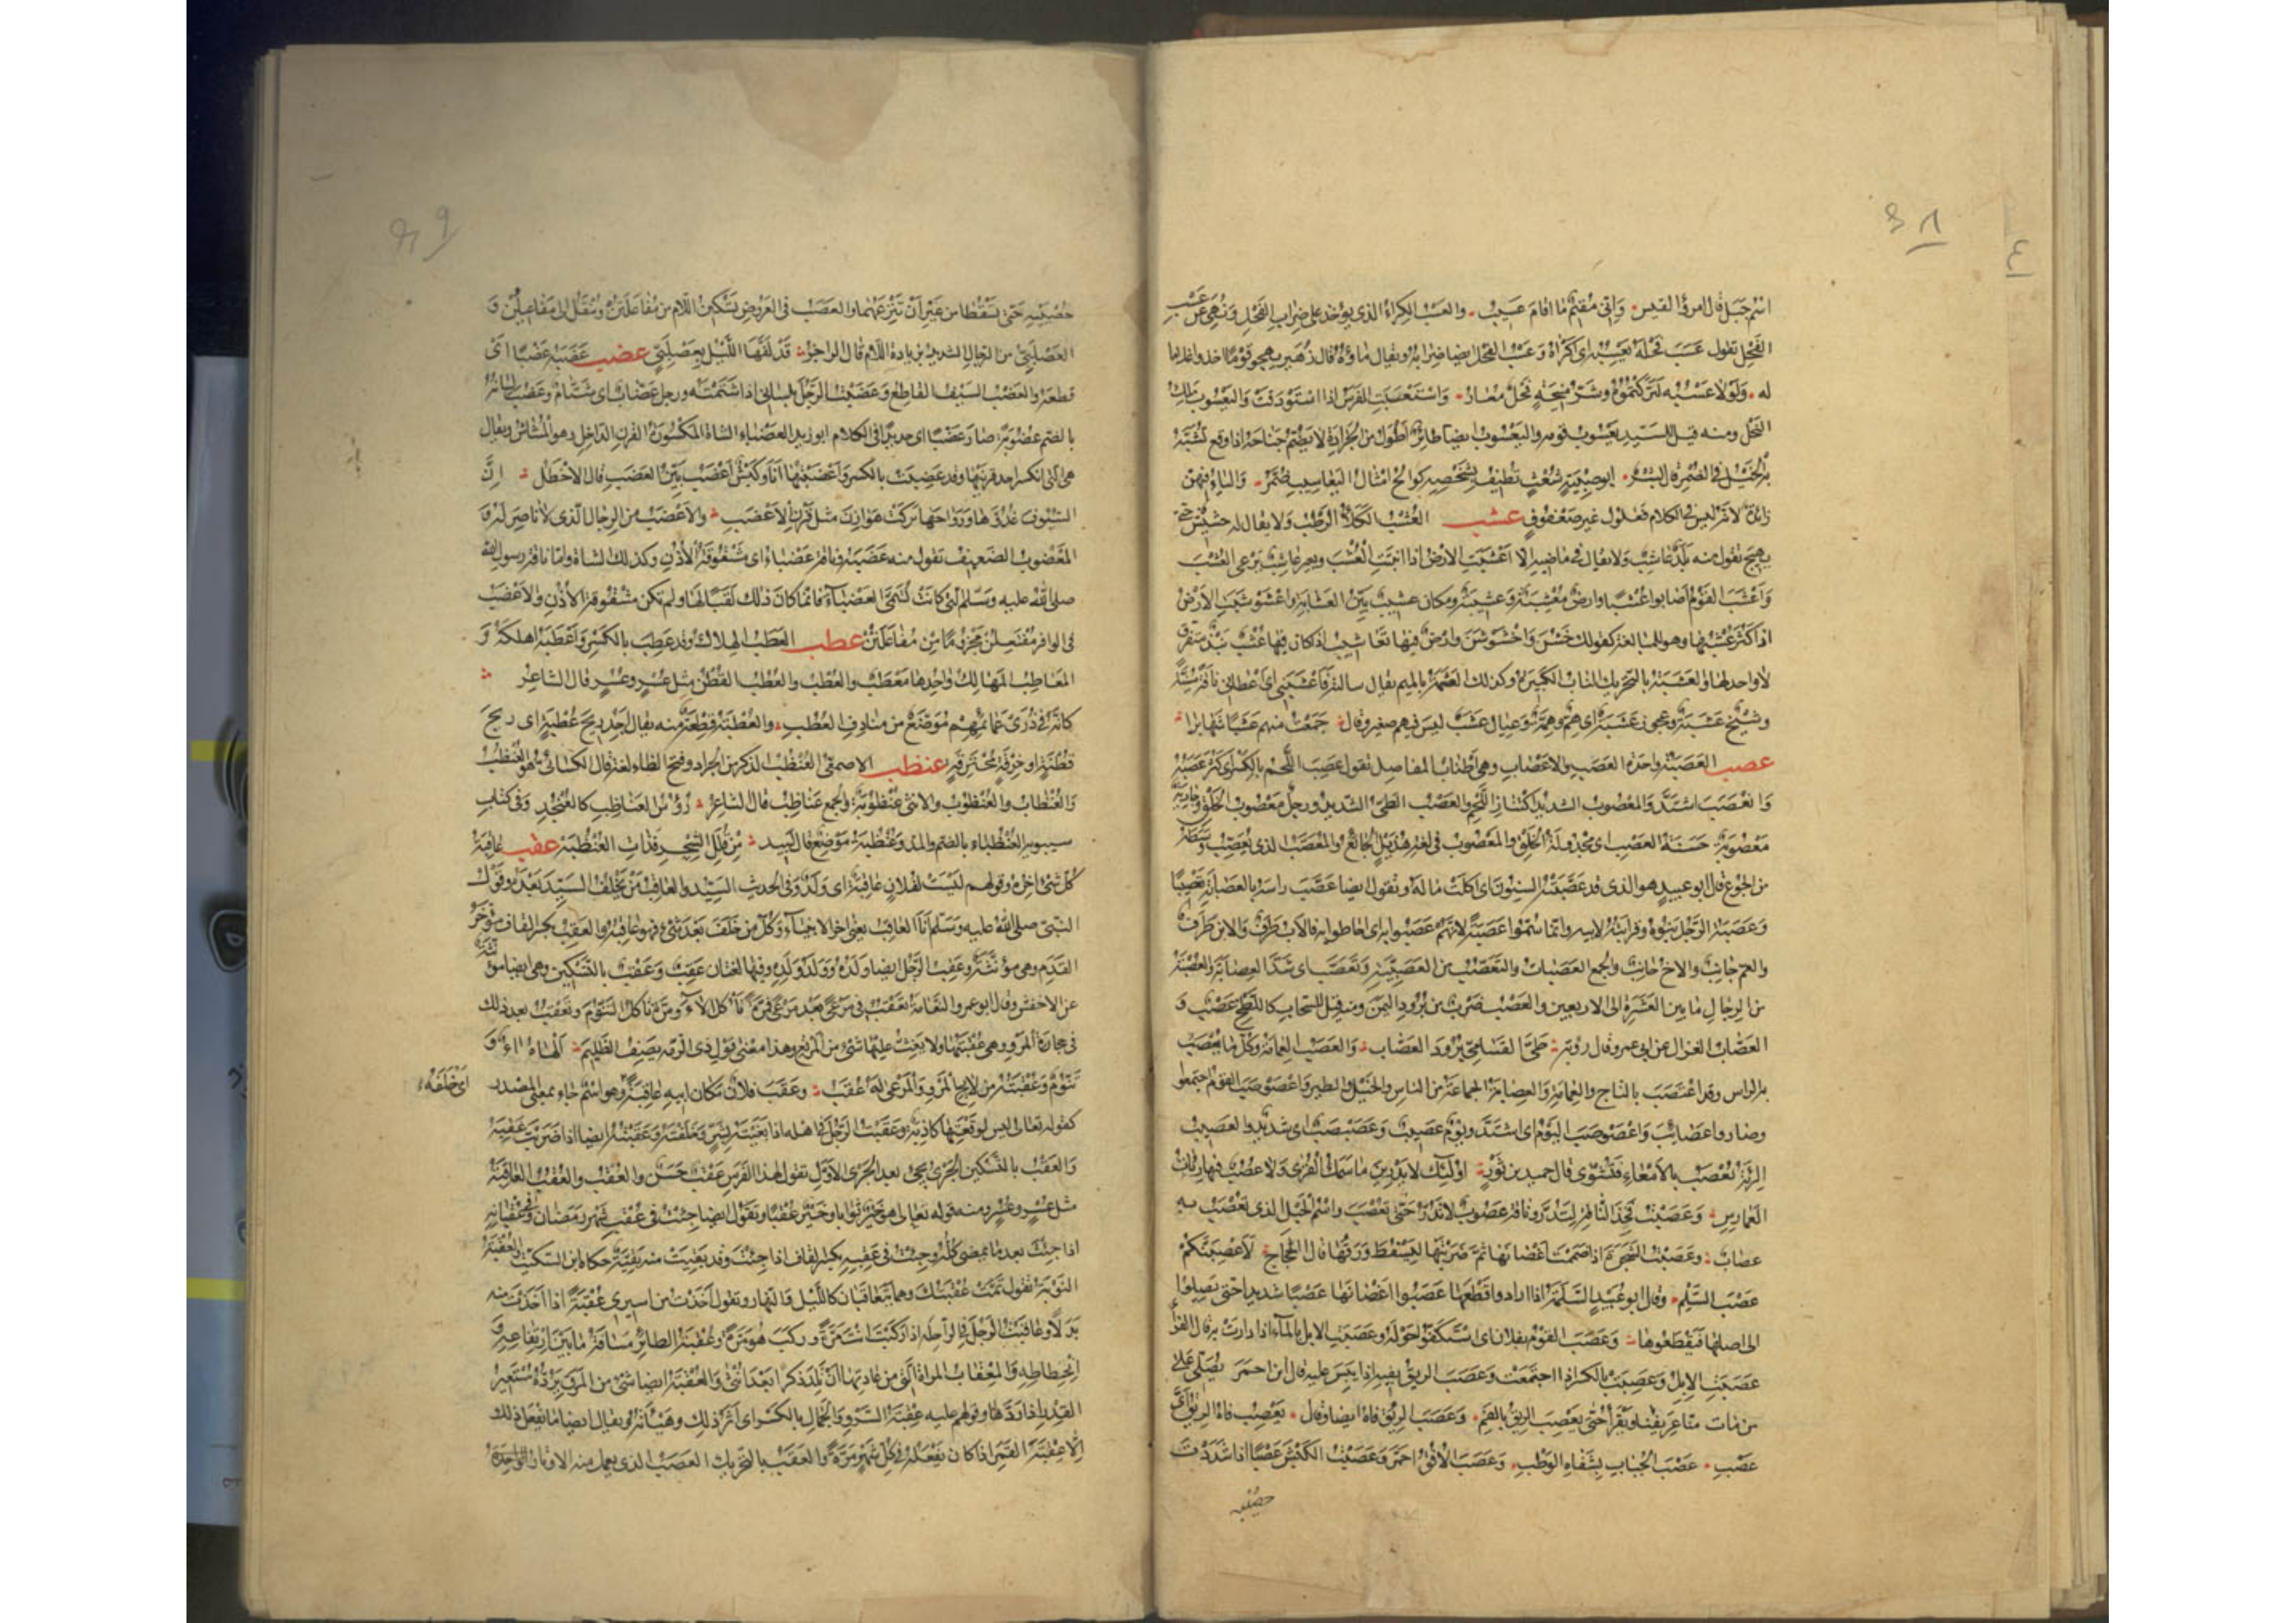 ٣٨
٤١
اسم جبل قال امرؤ القيس وَاِنّى مُقيمٌ ما اقامَ عَسيبُ والعَسْبُ الكِراءُ الذى يؤخذ على ضِراب الفَحْلِ ونُهِىَ عن عَسْبِ
الفَحْلِ تقول عَسَبَ فَحْلَهُ يَعْسِبُه اى اَكْراهُ وعَسْبُ الفحل ايضا ضِرابُهُ ويقال ماؤه قال زُهَير يهجو قَوْمًا اخذوا غلاما
له وَلَوْلا عَسْبُه لَتَرَكْتُمُوهُ وشَرُّ مَنِيحَةٍ فَحْلٌ مُعارُ واسْتَعْسَبَتِ الفَرَسُ اذا اسْتَوْدَقَتْ وَاليَعْسُوبُ مَلِكُ
النحل ومنه قيل للسَيّدِ يَعْسوبُ قومه واليَعْسُوبُ ايضا طائرٌ اَطْوَلُ من الجَرادَةِ لا يَضُمّ جَناحَهُ اذا وقع تُشَبَّهُ
به الخَيْلُ فى الضُمْرِ قال بشر ابو صِبْيَةٍ شُعْثٍ تُطيفُ بِشَخْصِهِ كوالحُ امثالُ اليَعاسيبِ ضُمَّرُ والياءُ فيه
زائدة لانه ليس فى الكلام فَعْلُول غير صَعْفُوقٍ عشب العُشْبُ الكَلَأُ الرَطْبُ ولا يقال له حشيش حتى
يهيج تقول منه بَلَدٌ عاشِبٌ ولا يقال فى ماضيه الا اَعْشَبَتِ الارضُ اذا انبتَتِ العُشْبَ وبعير عاشِبٌ يَرْعى العُشْبَ
وَاَعْشَبَ القَوْمُ اَصابوا عُشْبًا وارضٌ مُعْشِبَةٌ وعَشِيبَةٌ ومكان عشيب بَيِّنُ العَشابَةِ واعْشَوْشَبَتِ الارضُ
اذا كَثُرَ عُشْبُها وهو للمبالغة كقولك خَشُنَ وَاخْشَوْشَنَ وارضٌ فيها تَعاشيبُ اذا كان فيها عُشْبٌ نَبْذٌ متفرق
لا واحد لها والعَشَبَةُ بالتحريك النابُ الكبيرة وكذلك العَشَمَةُ بالميم يقال سالته فَاَعْشَبَنِى اى اعطانى ناقة مُسِنَّةً
وشَيْخٌ عَشَبَةٌ وعجوز عَشَبَة اى هِمٌّ وهِمَّة وعيال عَشَبٌ ليس فيهم صغير وقال جَمَعْتُ منهم عَشَبًا شَهابِرا
عصب العَصَبَةُ واحدة العَصَبِ والاعصابِ وهى اَطْنابُ المفاصِلِ تقول عَصِبَ اللَّحْمُ بالكسر اى كثر عَصَبُهُ
وَانعَصَبَ اشتدّ والمَعْصُوبُ الشديد اكتِنازِ اللحم والعَصْبُ الطَىُّ الشديد ورجل مَعْصُوبُ الخَلْقِ وجارية
مَعْصُوبَةٌ حَسَنَةُ العَصْبِ اى مَجْدولة الخَلْقِ والمَعْصُوبُ فى لغة هُذَيْلٍ الجائعُ والمُعَصَّبُ الذى يُعَصِّبُ وسطه
من الجوع قال ابو عبيد هو الذى قد عَصَّبَتْهُ السِنونَ اى اكلَتْ مالَهُ وتقول ايضا عَصَّبَ راسَهُ بالعصابة تَعْصِيبًا
وعَصَبَةُ الرَّجُلِ بَنُوهُ وقَرابَتُهُ لابيه وانما سُمُّوا عَصَبَةً لانهم عَصَبوا به اى احاطوا به فالاب طَرَفٌ والابن طَرَفٌ
والعم جانِبٌ والاخ جانِبٌ والجمع العَصَباتُ والتَعَصُّبُ من العَصَبِيَّةِ وتَعَصَّبَ اى شَدَّ العِصابَةَ والعُصْبَةُ
من الرجال ما بين العَشَرة الى الاربعين والعَصْبُ ضَرْبٌ من بُرودِ اليَمَنِ ومنه قيل للسَحابِ كاللَّطْخِ عَصْبٌ و
العَصّابُ الغزال عن ابى عمرو قال رؤبة طَىَّ القَسامِىِّ بُرُودَ العَصّابْ والعَصْبُ العِمامة وكلّ ما يُعْصَبُ
به الراس وقد اعْتَصَبَ بالتاج والعِمامةِ والعِصابةُ الجماعة من الناس والخَيْلِ والطير وَاعْصَوْصَبَ القَوْمُ اجتمعوا
وصاروا عصائبَ وَاعْصَوْصَبَ اليَوْمُ اى اشتَدَّ ويومٌ عَصيبٌ وعَصَبْصَبٌ اى شديد والعَصيبُ
الرِئَةُ تُعْصَبُ بالامْعاءِ فتُشْوَى قال حميد بن ثَوْر اُولئك لا يَدْرِينَ ما سَمَكُ القُرَى ولا عُصُبٌ فيها رئاتُ
العَمارِسِ وعَصَبْتُ فَخِذَ الناقةِ لِتَدُرَّ وناقة عَصُوبٌ لا تَدُرُّ حَتّى تُعْصَبَ وَاسْمُ الحَبْلِ الذى تُعْصَبُ به
عصابٌ وعَصَبْتُ الشجرة اذا ضممت اَغْصانَها ثمّ ضَرَبْتَها ليَسْقُطَ وَرَقُها قال الحجاج لَاَعْصِبَنَّكُمْ
عَصْبَ السَلَمِ وقال ابو عُبَيْدٍ السَلَمَةُ اذا ارادوا قَطْعَها عَصَبُوا اَغْصانَها عَصْبًا شديدا حتى يَصِلُوا
الى اصلها فيَقْطَعُوها وعَصَبَ القوْمُ بفلان اى اسْتَكَفُّوا حَوْلَهُ وعَصَبَتِ الابل بالماء اذا دارت به قال الفرّا
عصَبَتِ الابل وعَصِبَتْ بالكسر اذا اجتمعت وعَصَبَ الريقُ بفيه اذا يَبِسَ عليه قال ابن احمر يُصَلِّى على
من مات منّا عَرِيفُنا ويَقْرَأُ حتى يَعْصِبَ الرِيقُ بالفَمِ وعَصَبَ الرِيقُ فاهُ ايضا وقال يَعْصِبُ فاهُ الريقُ اىَّ
عَصْبِ عَصْبَ الجُبابِ بِشِفاهِ الوَطْبِ وعَصَبَ الاُفُقُ احمرّ وعَصَبْتُ الكَبْشَ عَصْبًا اذا شَدَدْتَ
خصيَيه
٣٩
خُصْيَيْهِ حَتّى تسْقُطا من غير اَنْ تَنْزِعَهُما والعَصْبُ فى العَرُوضِ تَسْكينُ اللام من مُفاعَلَتُنْ وتُنْقَلُ الى مَفاعِيلُنْ و
العَصْلَبِىُّ من الرجال الشديد بزيادة اللام قال الراجز قَدْ لَفَّها اللَّيْلُ بِعَصْلَبِىِّ عضب عَضَبَهُ عَضْبًا اى
قطعه والعَضْبُ السَيفُ القاطِعُ وعَضَبْتُ الرَّجُلَ بلسانى اذا شَتَمْتَه ورجل عَضّابٌ اى شَتّامٌ وعَضُبَ لسانه
بالضم عُضُوبَةً صار عَضْبًا اى حديدًا فى الكلام ابو زيد العَضْباءُ الشاة المَكْسُورةُ القرنِ الداخِلِ وهو المُشاش ويقال
هى التى انكسر احد قرنَيْها وقد عَضِبَتْ بالكسر وَاَعْضَبْتُها اَنا وكَبْشٌ اَعْضَبُ بَيِّنُ العَضَبِ قال الاخطل اِنَّ
السُيُوفَ غُدُوَّها ورَواحَها تَركَتْ هَوازِنَ مثلَ قَرْنِ الاَعْضَبِ والاعْضَبُ من الرجال الذى لا ناصِرَ له و
المَعْضُوبُ الضعيفُ تقول منه عَضَبَه وناقة عَضْباءُ اى مَشْقُوقَةُ الاُذُنِ وكذلك الشاة واما ناقة رسول الله
صلى الله عليه وسلم التى كانَتْ تُسَمَّى العَضْباءَ فانما كانَ ذلك لَقَبًا لها ولم تكن مَشْقُوقة الاُذُنِ والاَعْضَبُ
فى الوافر مُفْتَعِلُنْ مَخْرُومًا مِن مُفاعَلَتُنْ عطب العَطَبُ الهلاك وقد عَطِبَ بالكسر وَاَعْطَبَه اهلكه و
المَعاطِبُ المَهالِكُ واحدها مَعْطَبٌ والعُطْبُ والعُطُبُ القُطْنُ مثل عُسْرٍ وعُسُرٍ قال الشاعر
كانّهُ فى ذُرَى عَمائِمِهِمْ مُوَضَّعٌ من مَنادِفِ العُطُبِ والعُطْبَةُ قِطْعَةٌ منه يقال اَجِدُ رِيحَ عُطْبَةٍ اى ريحَ
قُطْنَةٍ او خِرْقَةٍ مُحْتَرِقةٍ عنظب الاصمعى العُنْظُبُ الذكر من الجراد وفتح الظاء لغة قال الكسائى هو العُنْظُبُ
والعُنْظابُ والعُنْظُوبُ والانثى عُنْظُوبَةٌ والجمع عَناظِبُ قال الشاعر رُؤُسُ العَناظِبِ كالعُنْجُدِ وفى كتاب
سيبويه العُنْظُباءُ بالضم والمدّ وعُنْظُبَةُ مَوْضِعٌ قال لبيد مِنْ قُلَلِ الشِّحْرِ فَذاتِ العُنْظُبَة عقب عاقِبَةُ
كُلّ شَىْءٍ اخِرُهُ وقولهم لَيْسَتْ لفلانٍ عاقِبَةٌ اى وَلَدٌ وفى الحديث السَيّدُ والعاقِبُ مَنْ يَخْلُفُ السَيِّدَ بَعْدَهُ وقَوْلُ
النبىّ صلى الله عليه وسلم اَنا العاقِبُ يعنى اخر الانبياء وكلُّ من خَلَفَ بَعْدَ شَىْءٍ فهو عاقِبُه والعَقِبُ بكسر القاف مُؤَخَّرُ
القدَمِ وهى مؤنَّثَةٌ وعَقِبُ الرَّجُل ايضا ولَدُهُ ووَلَدُ ولَدِه وفيها لغتان عَقِبٌ وعَقْبٌ بالتسكين وهى ايضا مؤنثة
عن الاخفش وقال ابو عمرو النعامة تَعْقُبُ فى مَرْعًى بَعْدَ مَرْعًى فمرّةً تَأْكُلُ الآءَ ومرّة تاكل التَنّومَ وتَعْقُبُ بعد ذلك
فى حجارة المَرْوِ وهى عُقْبَتُها ولا يَغِثُّ عليها شَىْءٌ من المرتع وهذا معنى قول ذى الرمّة يصف الظليم اَلْهاهُ آءٌ و
تَنُّومٌ وعُقْبَتُهُ من لائحِ المَرْوِ وَالمَرْعَى لَهُ عُقَبُ وعَقَبَ فلانٌ مكان ابيه عاقِبةً وهو اسْمٌ جاء بمعنى المصدر اى خَلَفَهُ
كقوله تعالى ليس لوَقْعَتِها كاذبة وعَقَبْتُ الرَّجُلَ فى اهله اذا بَغَيْتَه بِشَرٍّ وخَلَفْتَه وعَقَبْتُهُ ايضا اذا ضَرَبْتَ عَقِبَه
والعَقْبُ بالتسكين الجَرْىُ يجىء بعد الجَرْىِ الاوّلِ تقول لهذا الفَرَسِ عَقْبٌ حَسَنٌ والعُقْبُ والعُقُبُ العاقبة
مثل عُسْرٍ وعُسُرٍ ومنه قوله تعالى هو خَيْرٌ ثَوابا وخَيْرٌ عُقْبًا وتقول ايضا جِئْتُ فى عُقْبِ شَهْرِ رَمَضان وفى عُقْبانِهِ
اذا جِئْتَ بعد ما يمضى كُلُّه وجِئْتُ فى عَقِبِهِ بكسر القاف اذا جِئْتَ وقد بَقِيَتْ منه بَقِيّةٌ حكاه ابن السكيت والعُقْبَةُ
النَوْبَة تقول تَمَّتْ عُقْبَتُكَ وهما يَتَعاقَبانِ كاللَّيْلِ والنهار وتقول اَخَذْتُ من اسيرى عُقْبَةً اذا اخَذْتَ منه
بَدَلًا وعاقَبْتُ الرَّجُلَ فى الراحِلَةِ اذا رَكِبْتَ اَنْتَ مَرَّةً وركب هُوَ مَرَّةً وعُقْبَةُ الطائِرِ مَسافَةُ ما بَيْنَ ارتفاعِهِ و
انْحِطاطِهِ وَالمِعْقابُ المراة التى من عادتها اَنْ تَلِدَ ذكرا بَعْدَ اُنْثَى والعُقْبَةُ ايضا شَىْءٌ من المَرَقِ يَرُدُّهُ مُسْتَعِيرُ
القِدْرِ اذا رَدَّها وقولهم عليه عِقْبَةُ السَرْوِ والجَمال بالكسر اى اَثَرُ ذلك وهَيْاَتُهُ ويقال ايضا ما يفعل ذلك
اِلّا عِقْبَةَ القَمَرِ اذا كان يَفْعَلُهُ فى كلّ شَهْرٍ مَرَّةً والعَقَبُ بالتحريك العَصَبُ الذى يعمل منه الاوتار الواحدة